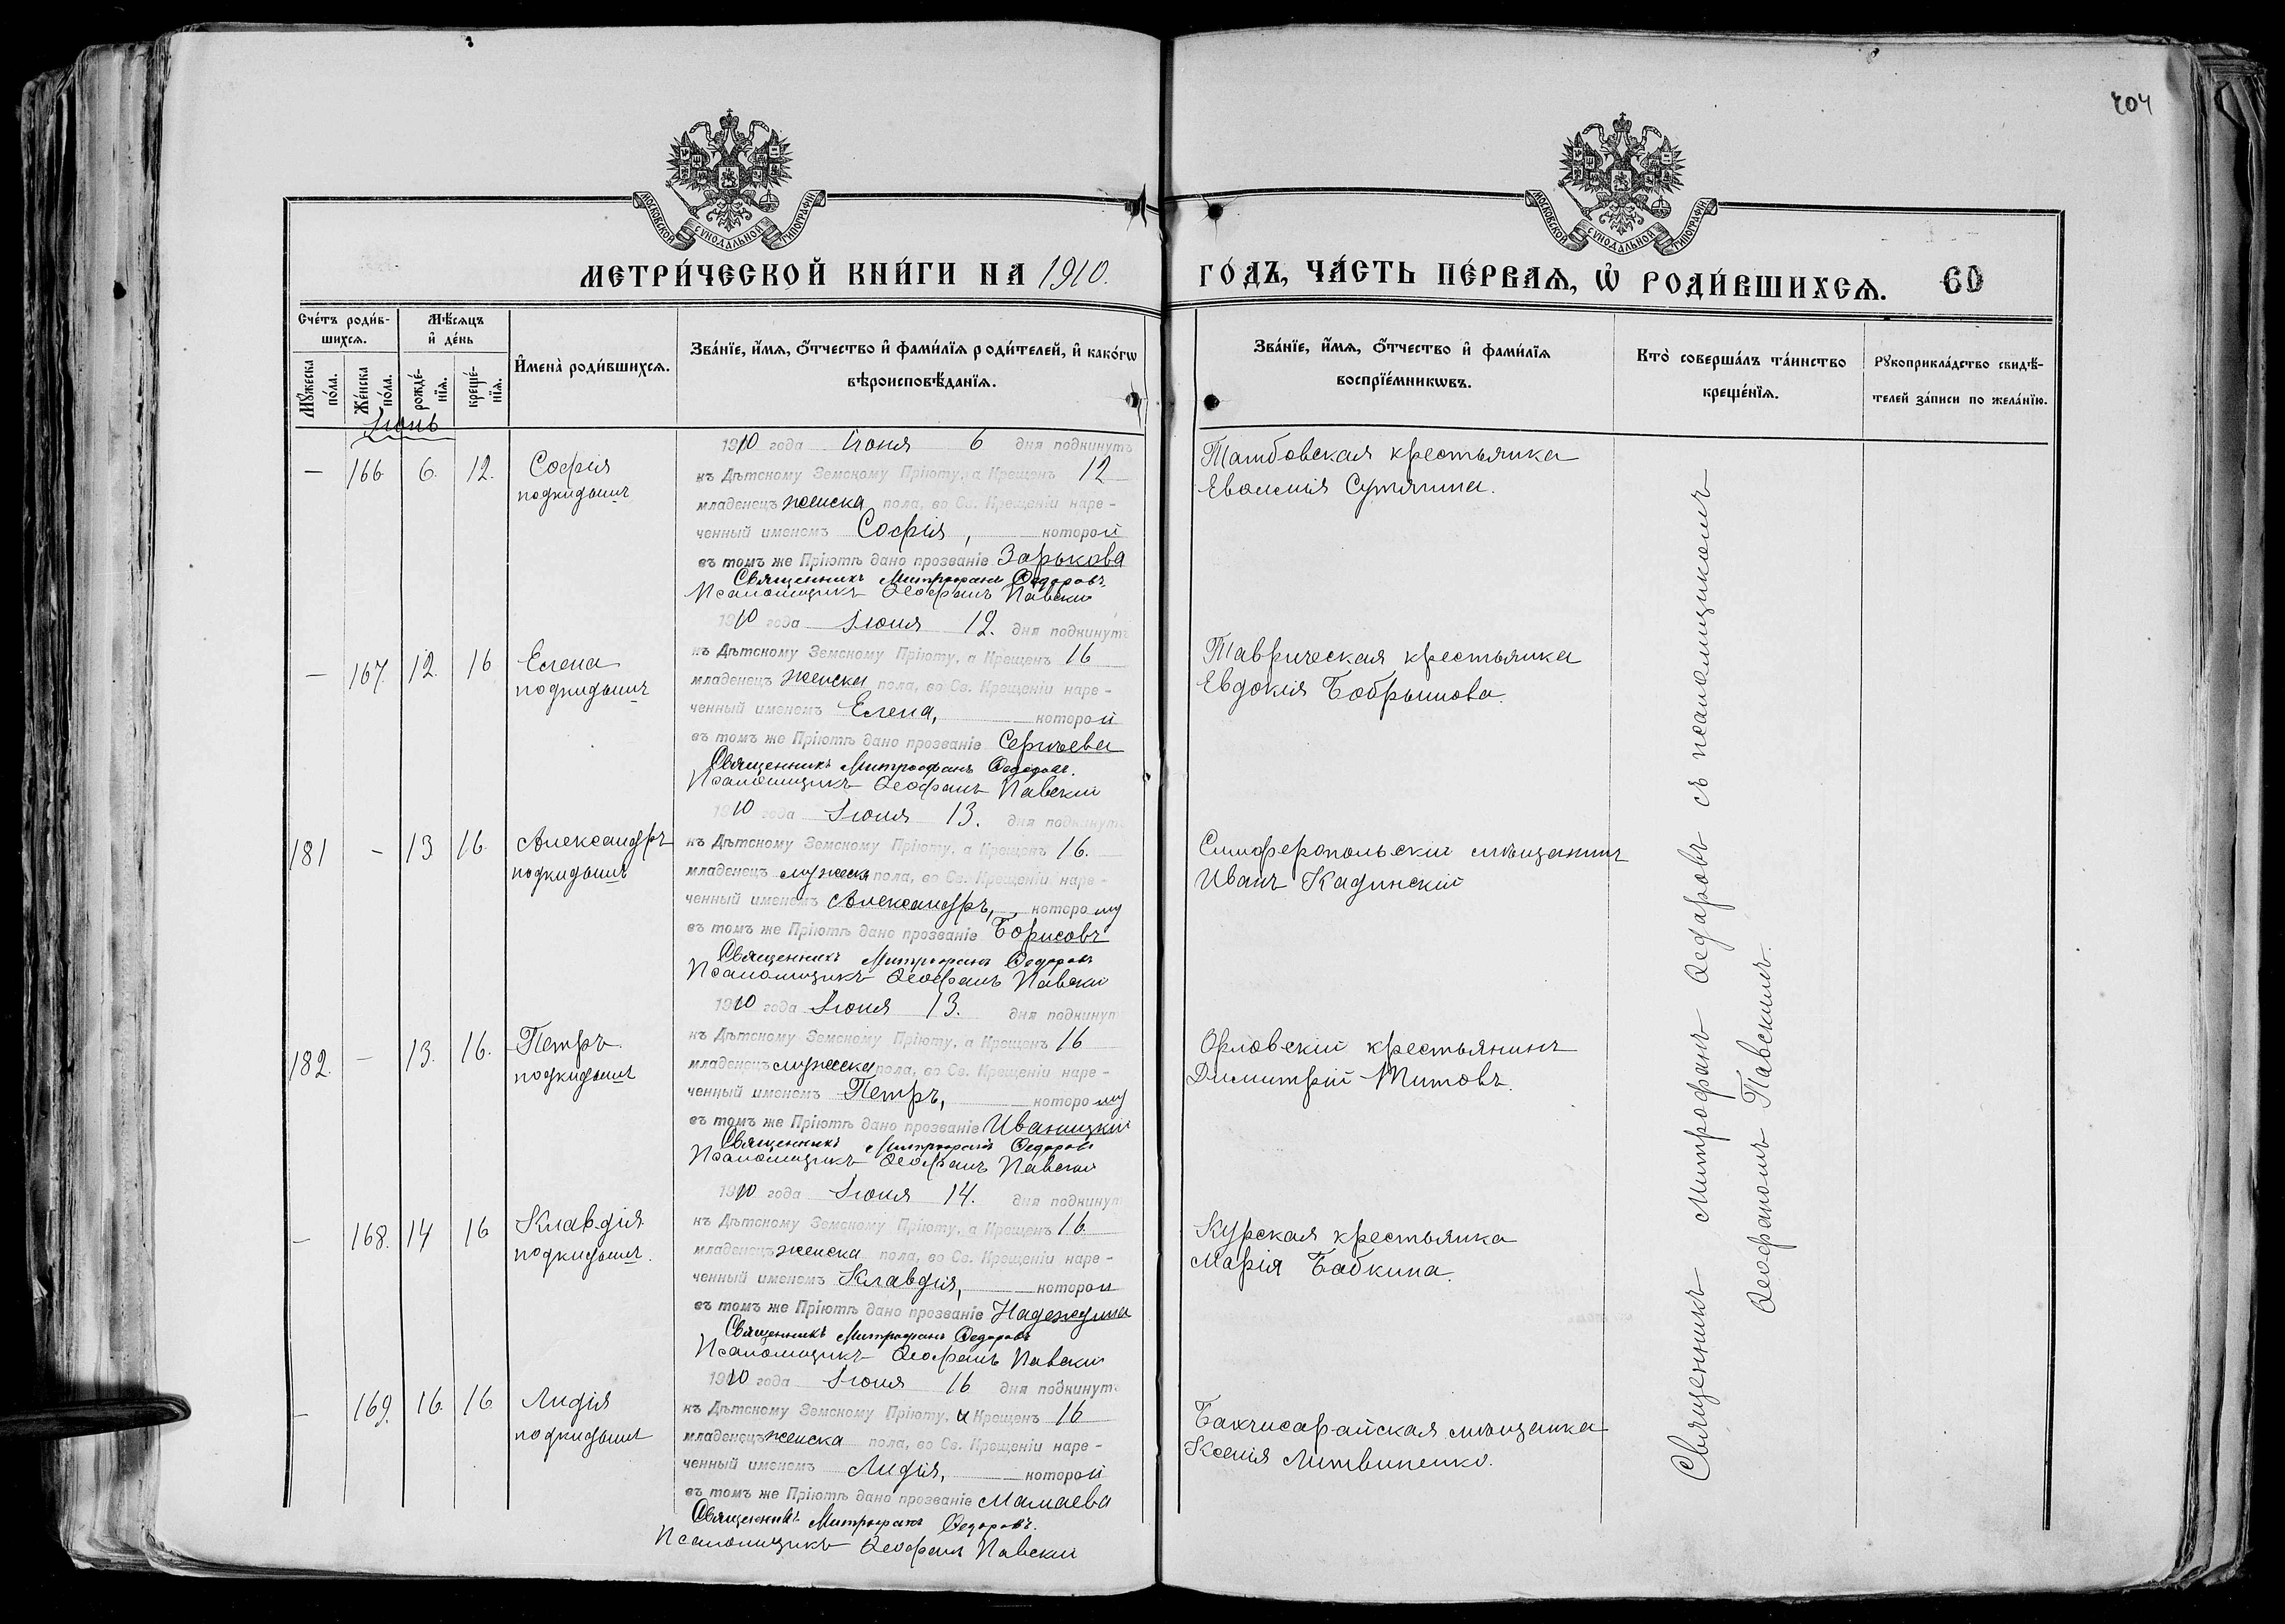 404
МОСКОВСКОЙ СѴНОДАЛЬНОЙ ТИПОГРАФІИ
МОСКОВСКОЙ СѴНОДАЛЬНОЙ ТИПОГРАФІИ
МЕТРИ́ЧЕСКОЙ КНИ́ГИ НА 1910. ГО́ДЪ, ЧА́СТЬ ПЕ́РВАѦ, Ѡ҆ РОДИ́ВШИХСѦ. 60
Сче́тъ роди́в-
шихсѧ.
Мꙋ́жеска по́ла.
Же́нска по́ла.
Мѣ́сѧцъ
и҆ де́нь
рожде́-нїѧ.
креще́-нїѧ.
И҆мена̀ роди́вшихсѧ.
Зва́нїе, и҆́мѧ, ѻ҆́тчество и҆ фами́лїѧ роди́телей, и҆ како́гѡ
вѣроисповѣ́данїѧ.
Зва́нїе, и҆́мѧ, ѻ҆́тчество и҆ фами́лїѧ
воспрїе́мникѡвъ.
Кто̀ соверша́лъ та́инство
креще́нїѧ.
Рꙋкоприкла́дство свидѣ́-
телей за́писи по жела́нїю.
Іюнь
— 166 6. 12. Софія
подкидышъ
1910 года Іюня 6 дня подкинутъ
къ Дѣтскому Земскому Пріюту, а Крещенъ 12
младенецъ женска пола, во Св. Крещеніи наре-
ченный именемъ Софія, которой
въ томъ же Пріютѣ дано прозваніе Зорькова
Священникъ Митрофанъ Ѳедоровъ
Псаломщикъ Ѳеофанъ Павскій
Тамбовская крестьянка
Евѳимія Сутягина.
— 167. 12. 16 Елена
подкидышъ
1910 года Іюня 12. дня подкинутъ
къ Дѣтскому Земскому Пріюту, а Крещенъ 16
младенецъ женска пола, во Св. Крещеніи наре-
ченный именемъ Елена, которой
въ томъ же Пріютѣ дано прозваніе Сергѣева
Священникъ Митрофанъ Ѳедоровъ.
Псаломщикъ Ѳеофанъ Павскій
Таврическая крестьянка
Евдокія Бобрышова.
181 - 13 16. Александръ
подкидышъ
1910 года Іюня 13. дня подкинутъ
къ Дѣтскому Земскому Пріюту, а Крещенъ 16.
младенецъ мужеска пола, во Св. Крещеніи наре-
ченный именемъ Александръ, которому
въ томъ же Пріютѣ дано прозваніе Борисовъ
Священникъ Митрофанъ Ѳедоровъ
Псаломщикъ Ѳеофанъ Павскій
Симферопольскій мѣщанинъ
Иванъ Кадинскій
182. — 13. 16. Петръ
подкидышъ
1910 года Іюня 13. дня подкинутъ
къ Дѣтскому Земскому Пріюту, а Крещенъ 16
младенецъ мужеска пола, во Св. Крещеніи наре-
ченный именемъ Петръ, которому
въ томъ же Пріютѣ дано прозваніе Иваницкій
Священникъ Митрофанъ Ѳедоровъ
Псаломщикъ Ѳеофанъ Павскій
Орловскій крестьянинъ
Димитрій Титовъ.
— 168. 14 16 Клавдія
подкидышъ.
1910 года Іюня 14. дня подкинутъ
къ Дѣтскому Земскому Пріюту, а Крещенъ 16
младенецъ женска пола, во Св. Крещеніи наре-
ченный именемъ Клавдія, которой
въ томъ же Пріютѣ дано прозваніе Надеждина
Священникъ Митрофанъ Ѳедоровъ
Псаломщикъ Ѳеофанъ Павскій
Курская крестьянка
Марія Бабкина.
— 169. 16. 16 Лидія
подкидышъ
1910 года Іюня 16 дня подкинутъ
къ Дѣтскому Земскому Пріюту, и Крещенъ 16
младенецъ женска пола, во Св. Крещеніи наре-
ченный именемъ Лидія, которой
въ томъ же Пріютѣ дано прозваніе Мамаева
Священникъ Митрофанъ Ѳедоровъ.
Псаломщикъ Ѳеофанъ Павскій
Бахчисарайская мѣщанка
Ксенія Литвиненко.
Священникъ Митрофанъ Ѳедоровъ съ псаломщикомъ
Ѳеофаномъ Павскимъ.